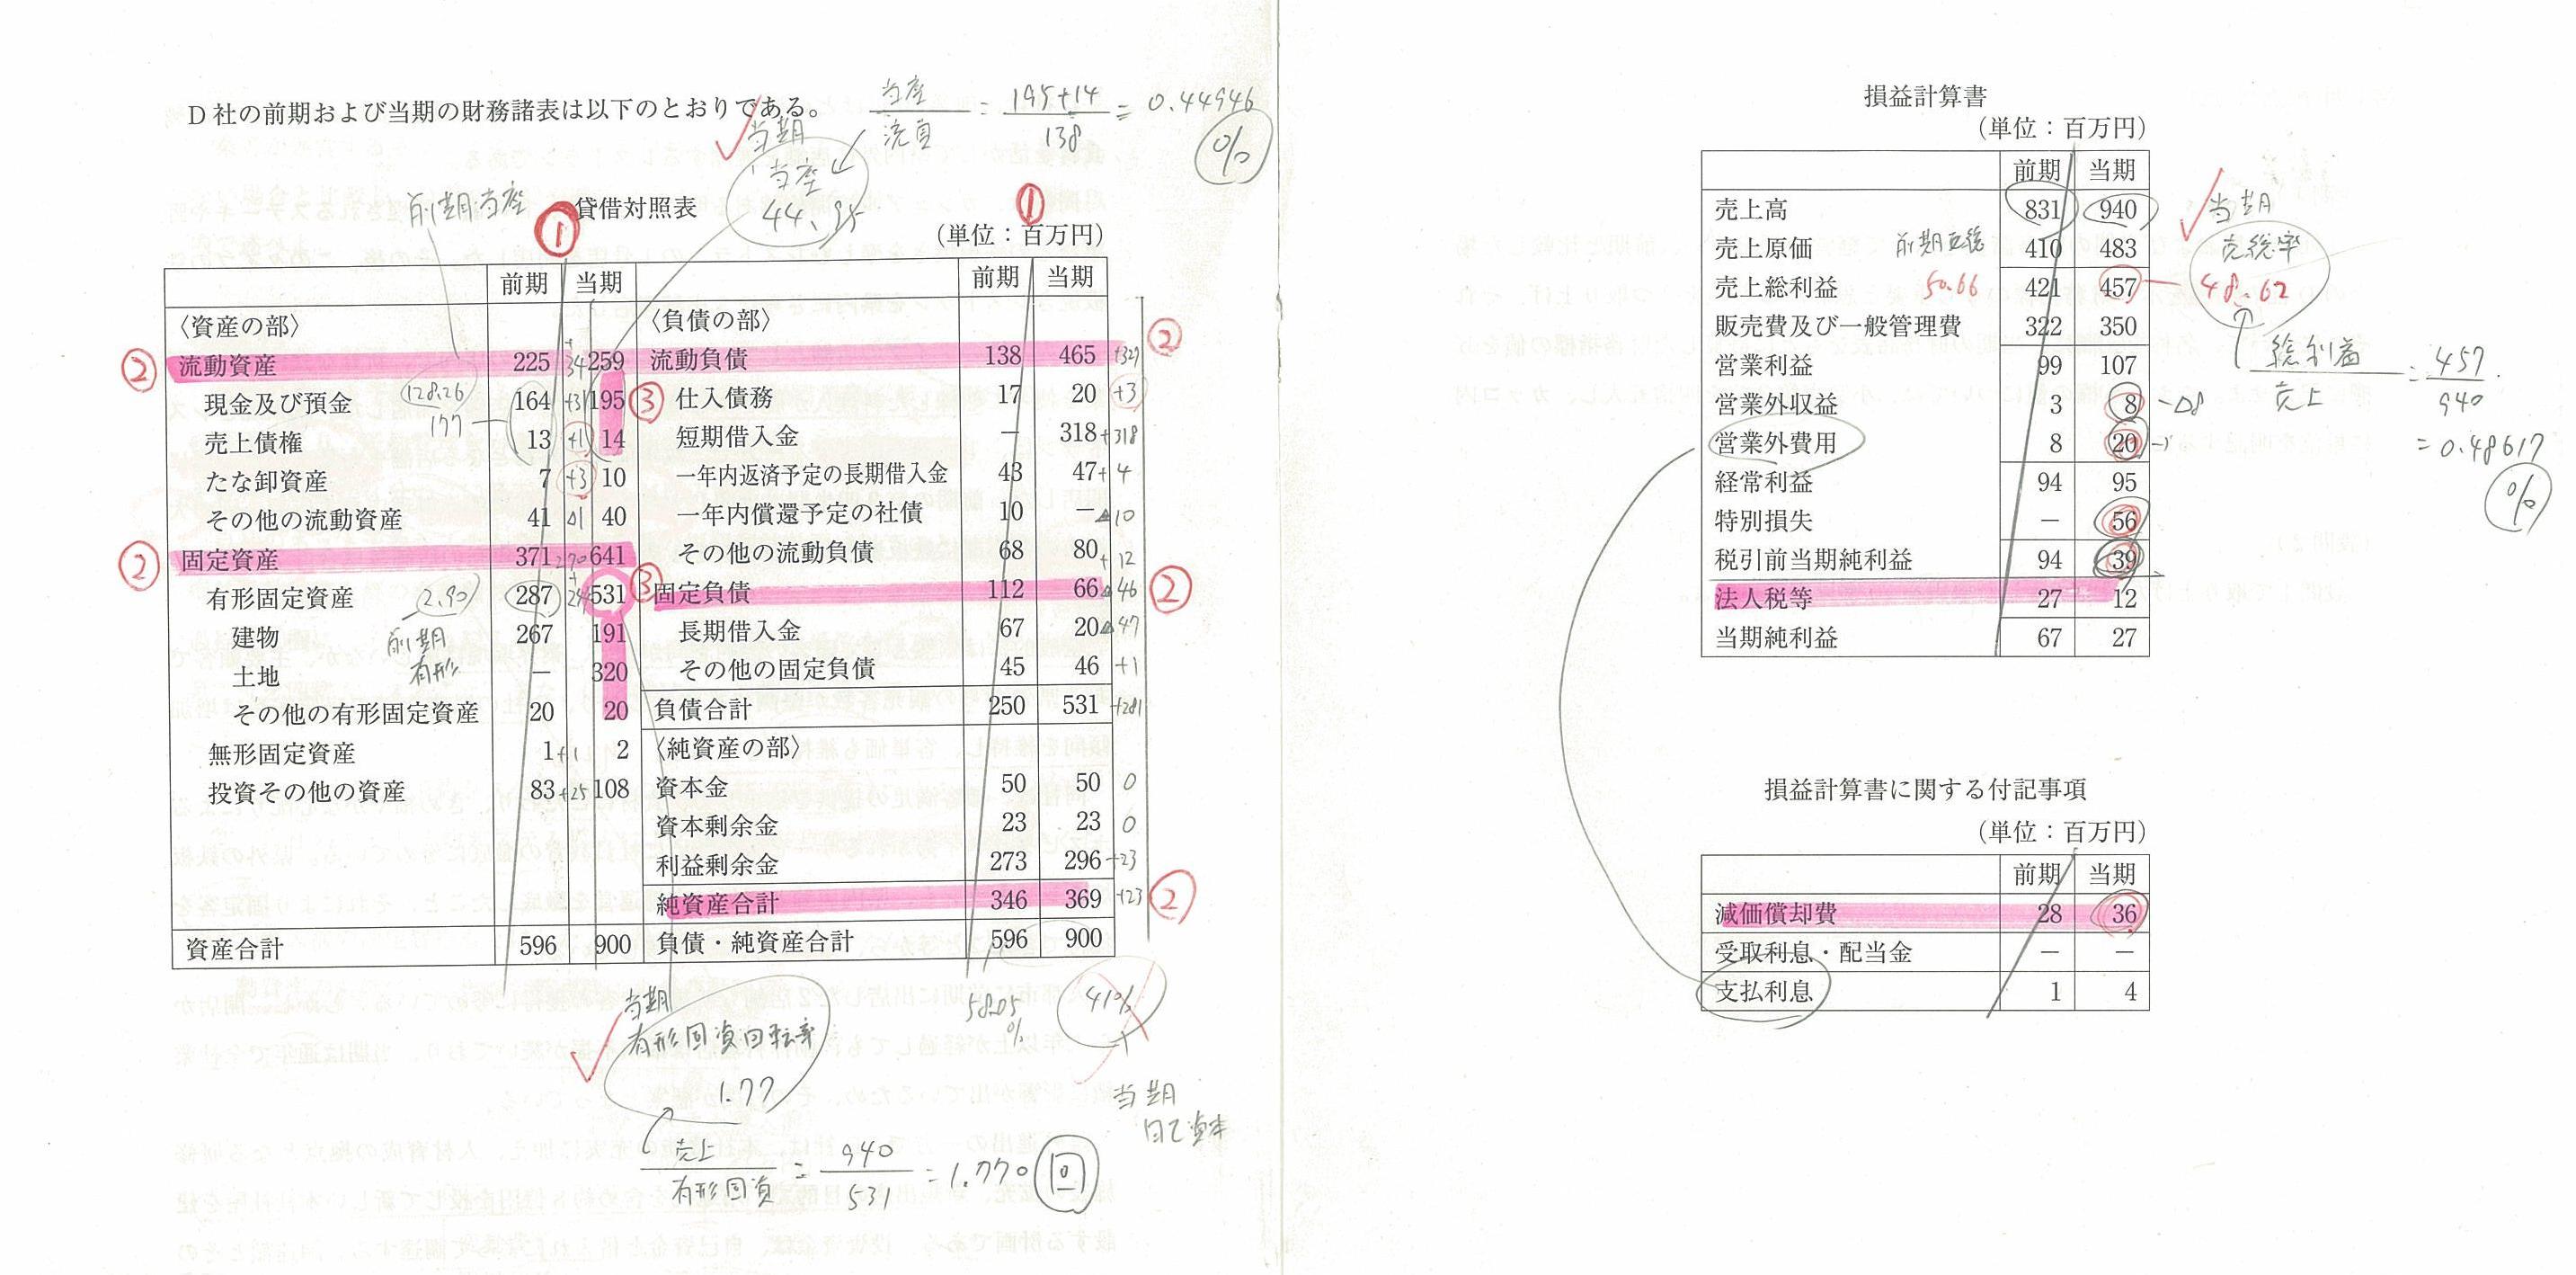 D社の前期および当期の財務諸表は以下のとおりである。
当座 / 流負 = 195+14 / 138 = 0.44946 %
当期
当座
44.95
前期当座
① ①
貸借対照表
(単位：百万円)
前期 当期 前期 当期
〈資産の部〉 〈負債の部〉
② 流動資産 225 +34 259 流動負債 138 465 +327 ②
128.26
177
現金及び預金 164 +31 195 ③ 仕入債務 17 20 +3
売上債権 13 +1 14 短期借入金 － 318 +318
たな卸資産 7 +3 10 一年内返済予定の長期借入金 43 47 +4
その他の流動資産 41 △1 40 一年内償還予定の社債 10 － ▲10
② 固定資産 371 270 641 その他の流動負債 68 80 +12
有形固定資産 2.90 287 +244 531 ③ 固定負債 112 66 ▲46 ②
前期
有形
建物 267 191 長期借入金 67 20 ▲47
土地 － 320 その他の固定負債 45 46 +1
その他の有形固定資産 20 20 負債合計 250 531 +281
無形固定資産 1 +1 2 〈純資産の部〉
投資その他の資産 83 +25 108 資本金 50 50 0
資本剰余金 23 23 0
利益剰余金 273 296 +23
純資産合計 346 369 +23 ②
資産合計 596 900 負債・純資産合計 596 900
58.05
%
41%
当期
自己資本
当期
有形固資回転率
1.77
売上 / 有形固資 = 940 / 531 = 1.770 回
損益計算書
(単位：百万円)
前期 当期
売上高 831 940
売上原価 前期売総 410 483
売上総利益 50.66 421 457
販売費及び一般管理費 322 350
営業利益 99 107
営業外収益 3 8 －△8
営業外費用 8 20
経常利益 94 95
特別損失 － 56
税引前当期純利益 94 39
法人税等 27 12
当期純利益 67 27
当期
売総率
48.62
総利益 / 売上 = 457 / 940
= 0.48617
%
損益計算書に関する付記事項
(単位：百万円)
前期 当期
減価償却費 28 36
受取利息・配当金 － －
支払利息 1 4